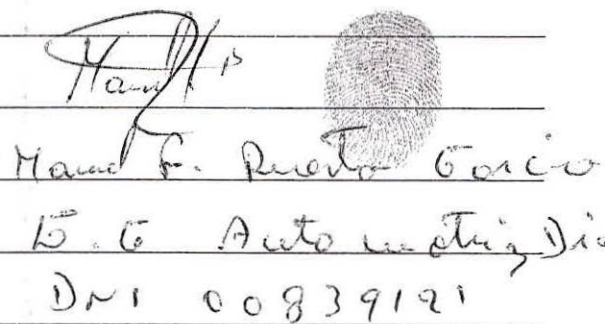 Manuel F. Puerta Garcia
E. G Automatriz Die
DNI 00839121